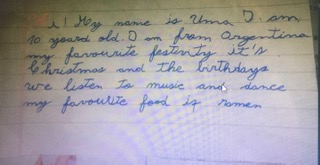 Hi! My name is Uma, I am
10 yeard old. I am from Argentina
my favourite festivity it's
Christmas and the birthdays
we listen to music and dance
my favourite food is ramen